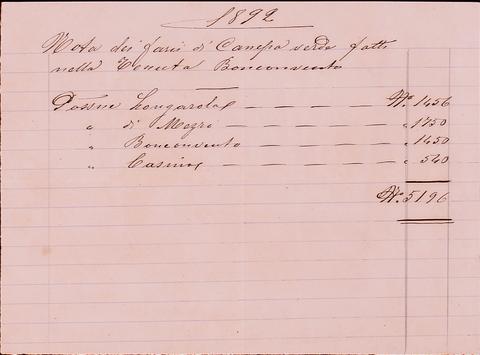 1892
Nota dei fasci di Canepa verde fatti
nella Tenuta Bonconvento
Possne Longarola — — — — N.o 1456
" di Mezzo — — — — " 1750
" Bonconvento — — — — " 1450
" Casino — — — — " 540
N.o 5196